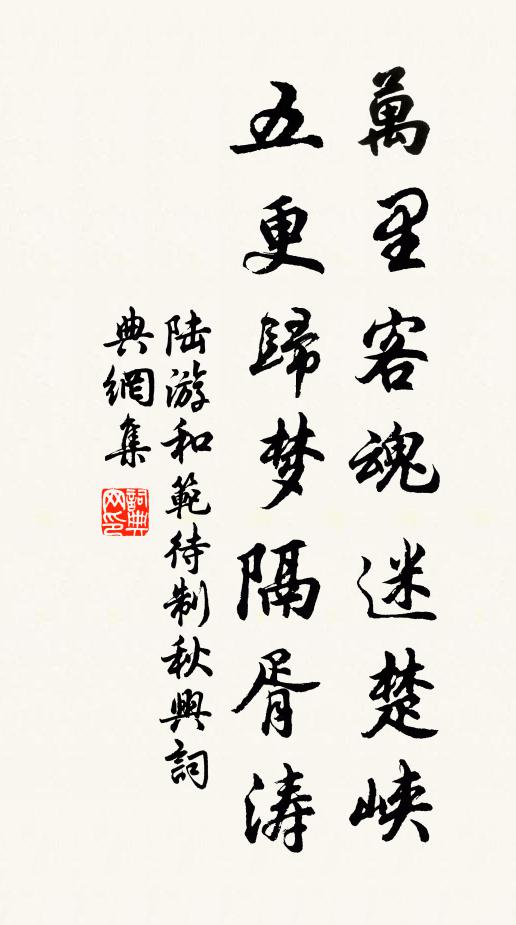 萬里客魂迷楚峡
五更歸梦隔胥涛
陆游和範待制秋興詞
典網集
詞典网印